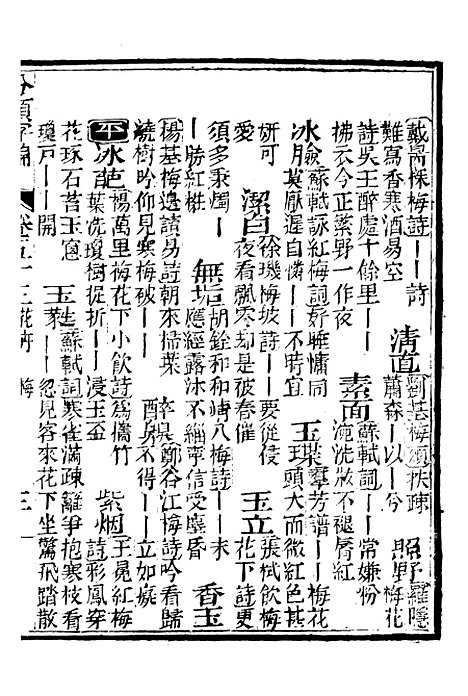 戴昺探梅詩｜｜詩難寫香寒酒易空 清道劉基梅頌扶疎蕭森｜以｜兮 照野羅隱梅花
詩吳王醉處十餘里｜｜拂衣今正繁野一作夜 素面蘇軾詞｜｜常嫌粉涴洗妝不褪脣紅
冰臉蘇軾詠紅梅詞好睡慵開｜｜莫厭遲自憐｜｜不時宜 玉瑛羣芳譜｜｜梅花頭大而微紅色甚
妍可愛 潔白徐璣梅坡詩｜｜要從侵夜看飄零却是被春催 玉立張栻飲梅花下詩更
須多秉燭｜｜勝紅桃 無垢胡銓和和靖八梅詩｜｜未應經露沐不緇寧信受塵昏 香玉
楊基梅邊讀易詩朝來掃葉繞樹吟仰見寒梅破｜｜ 酔吳鄭谷江梅詩吟看歸不得｜｜立如癡
平 冰葩楊萬里梅花下小飲詩爲攜竹葉洗瓊樹促折｜｜浸玉盃 紫烟王冕紅梅詩彩鳳穿
花琢石苔玉窻瓊戸｜｜開 玉蘂生蘇軾詞寒雀滿疎籬爭抱寒枝看｜｜忽見客來花下坐驚飛踏散
卷五十三花卉 梅